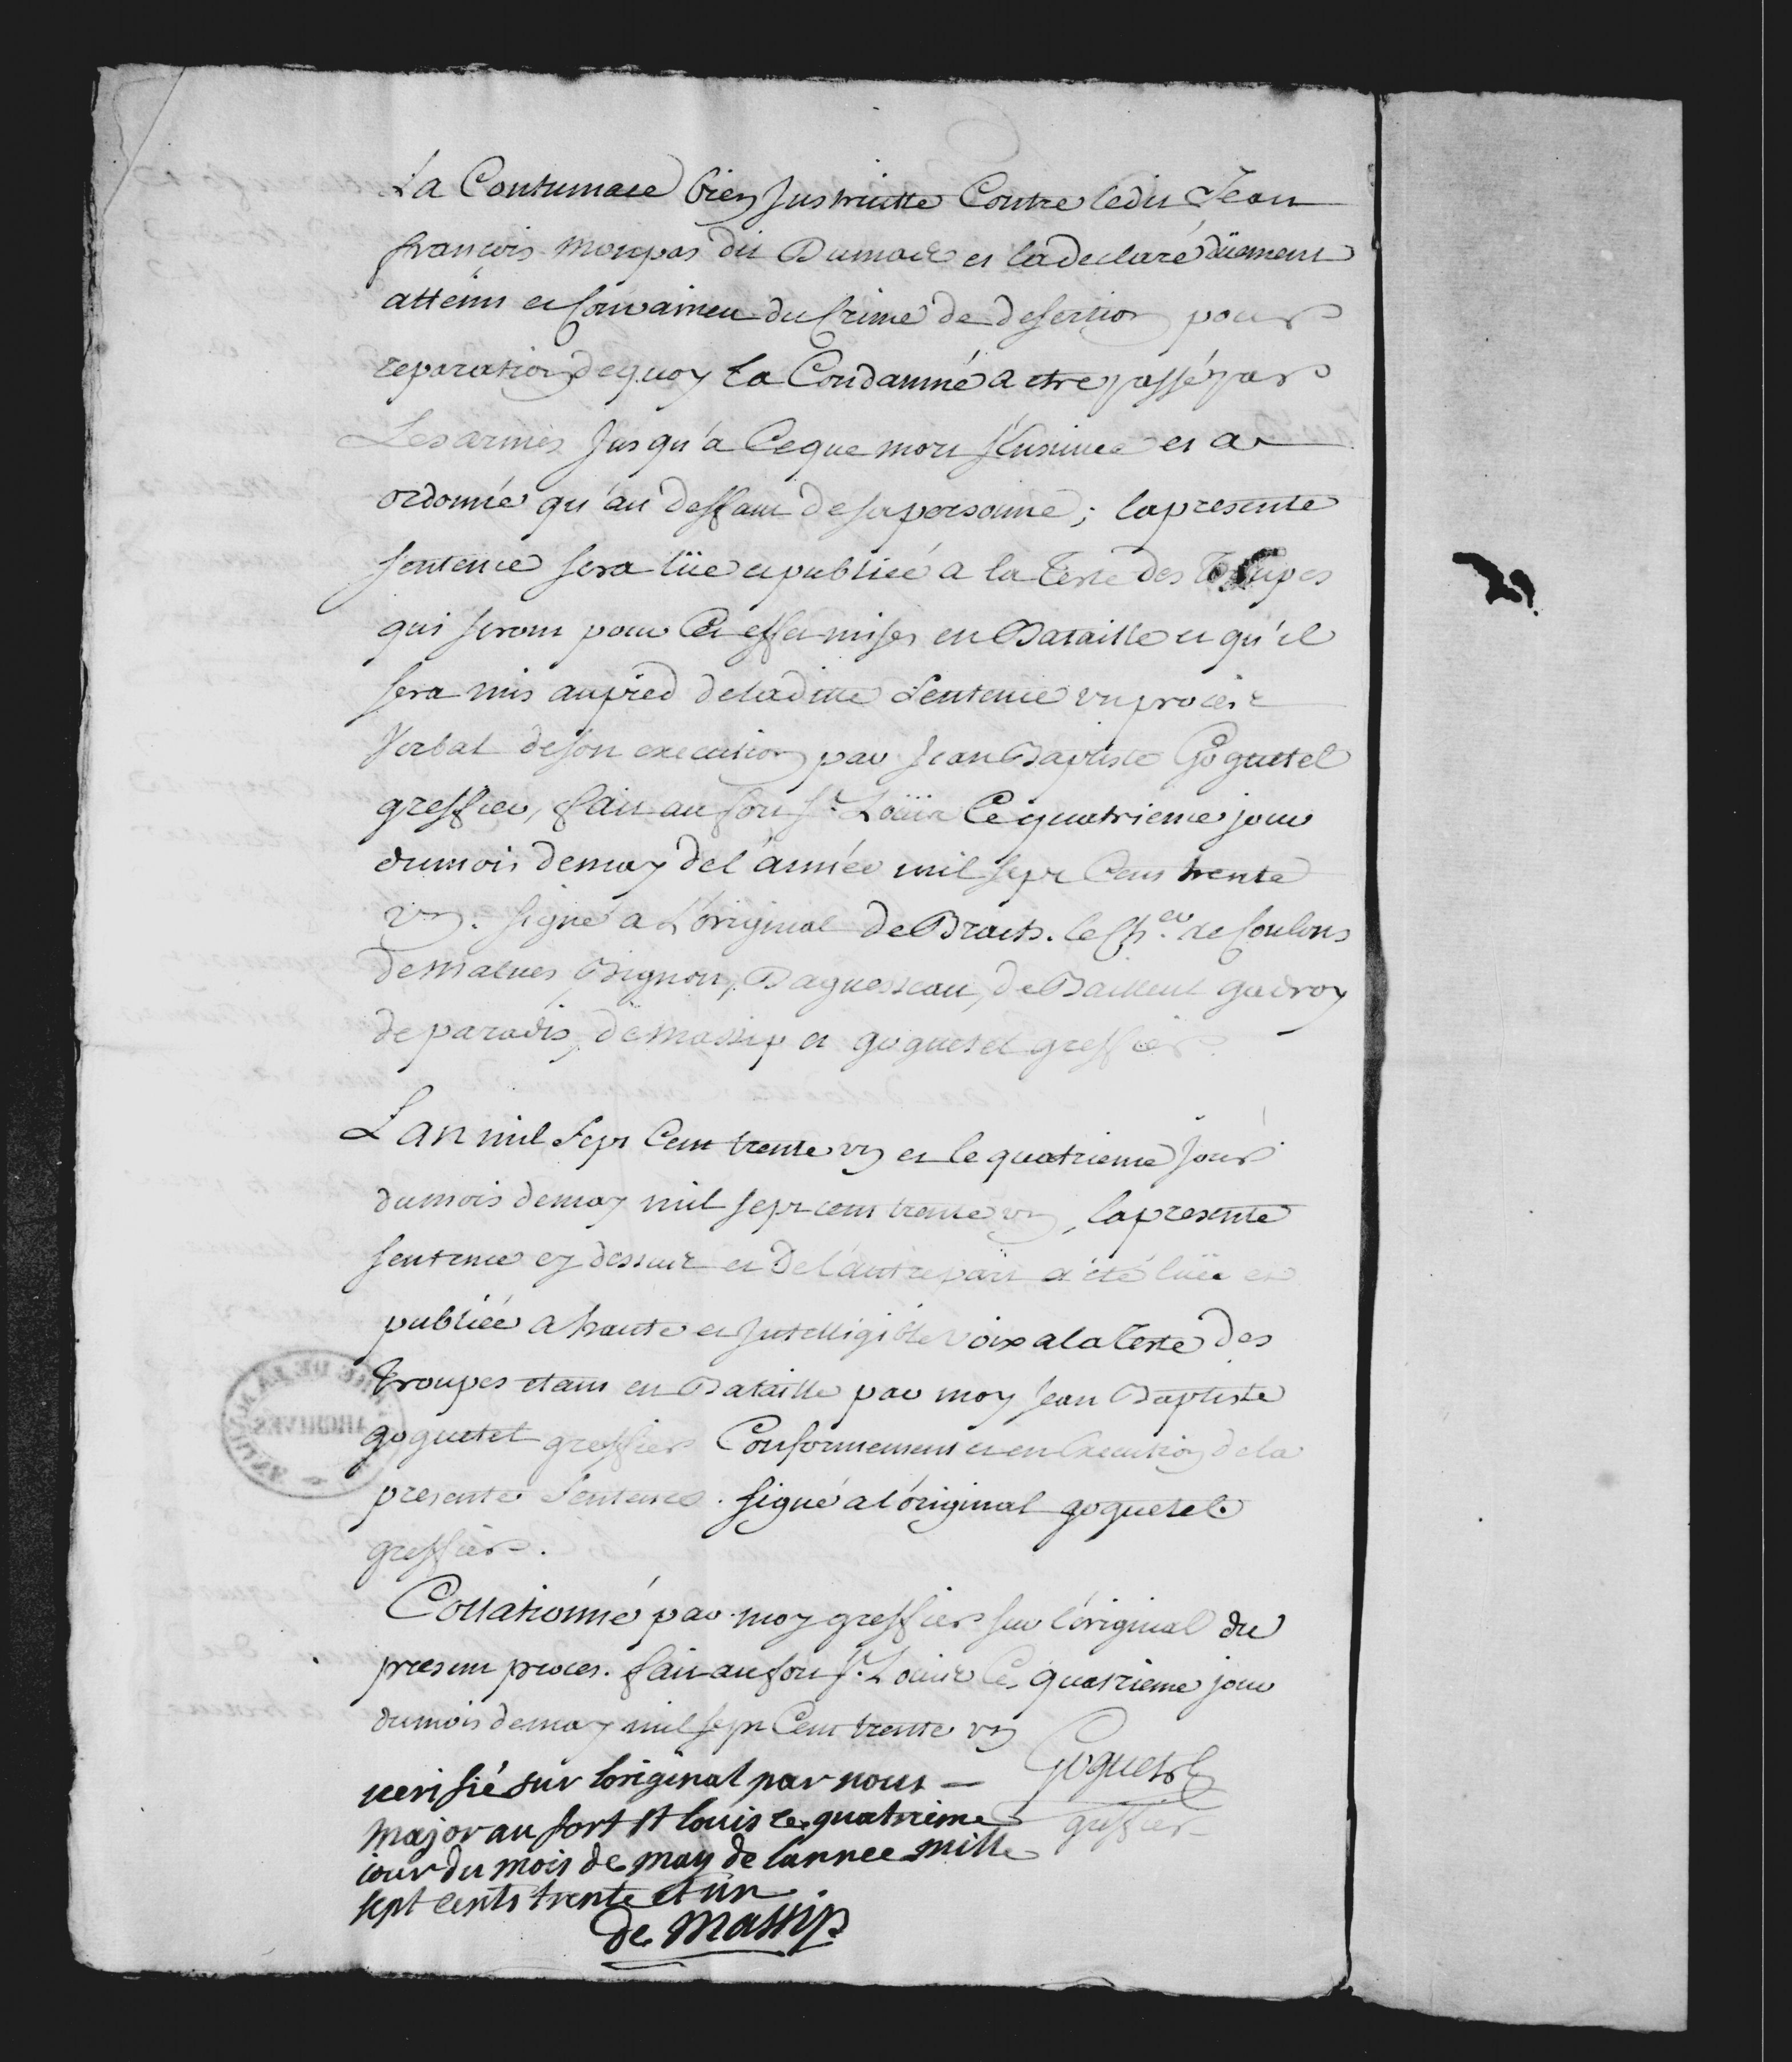 La Contumace bien Instruitte Contre ledit Jean
françois Monpas dit Dumade et la declaré düement
atteint et Convaincu du Crime de desertion pour
reparation dequoy la Condamné a etre passé par
Les armes Jusqu'a Ceque mort s'Ensuive et a
ordonné qu'au deffaut de sa personne; la presente
sentence sera lüe et publiée a la Teste des Troupes
qui seront pour Cet effet mises en Bataille et qu'il
sera mis au pied de la ditte Sentence un procez
Verbal de son execution par Jean Baptiste Goguetel
greffier, fait au fort St. Loüis Ce quatrieme jour
du mois de may de l'année mil sept Cens trente
un. signé a L'original De Brach. le Cher. de Coulons
de Malnes, Bignon, Daguesseau, de Bailleul godroy
de paradis, de Massip et goguetel greffier
L'an mil Sept Cent trente un et le quatrieme jour
du mois de may mil sept cent trente un, la presente
sentence cy dessus et De l'autre part a été lüe et
publiée a haute et Intelligible voix a la Teste des
Troupes etant en Bataille par moy Jean Baptiste
goguetel greffier Conformement et en Execution de la
presente Sentence. signé a l'original goguetel
greffier.
Collationné par moy greffier sur l'original du
present proces. fait au fort St. Loüis Ce quatrieme jour
du mois de may mil sept Cent trente un
Goguetel
greffier
verifié sur loriginal par nous
Major au fort St louis le quatrieme
jour du mois de may de lannee mille
sept cents trente et un
de Massip
ARCHIVES